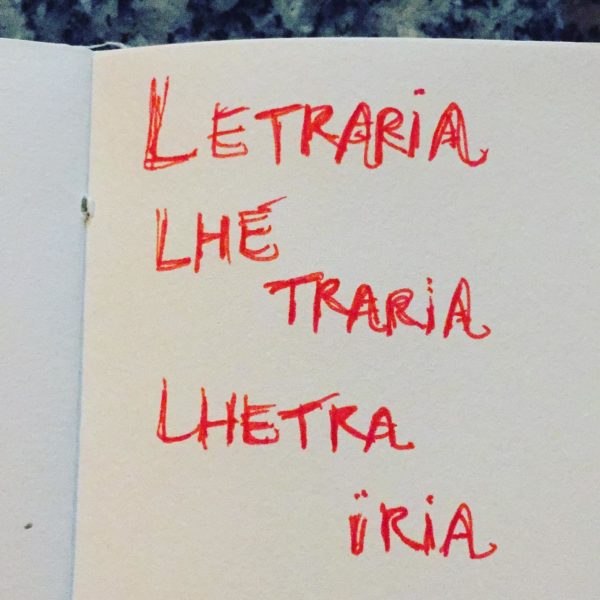 LETRARiA
LHE
TRARiA
LHETRA
iRiA